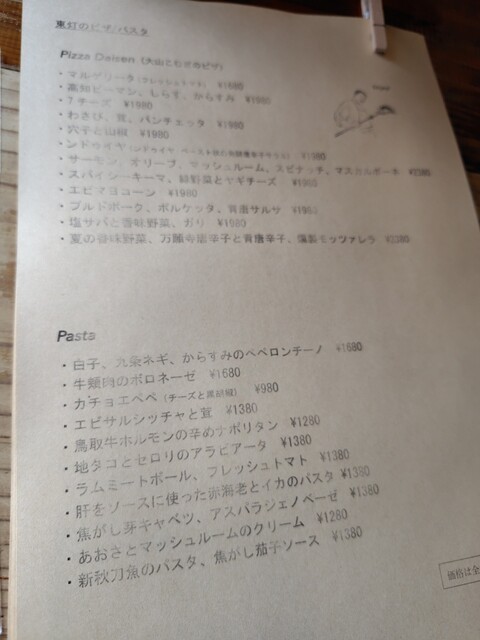 東灯のピザ/パスタ
Pizza Daisen (大山こむぎのピザ)
・マルゲリータ(フレッシュトマト) ¥1680
・高知ピーマン、しらす、からすみ ¥1980
・7チーズ ¥1980
・わさび、茸、パンチェッタ ¥1980
・穴子と山椒 ¥1980
・ンドゥイヤ(ンドゥイヤ ペースト状の ¥1980
・サーモン、オリーブ、マッシュルーム、スピナッチ、マスカルポーネ ¥2380
・スパイシーキーマ、緑野菜とヤギチーズ ¥1980
・エビマヨコーン ¥1980
・プルドポーク、ポルケッタ、青唐サルサ ¥1980
・塩サバと香味野菜、ガリ ¥1980
・夏の香味野菜、万願寺唐辛子と青唐辛子、燻製モッツァレラ ¥2380
Pasta
・白子、九条ネギ、からすみのペペロンチーノ ¥1680
・牛頬肉のボロネーゼ ¥1680
・カチョエペペ(チーズと黒胡椒) ¥980
・エビサルシッチャと茸 ¥1380
・鳥取牛ホルモンの辛めナポリタン ¥1280
・地タコとセロリのアラビアータ ¥1380
・ラムミートボール、フレッシュトマト ¥1380
・肝をソースに使った赤海老とイカのパスタ ¥1380
・焦がし芽キャベツ、アスパラジェノベーゼ ¥1380
・あおさとマッシュルームのクリーム ¥1280
・新秋刀魚のパスタ、焦がし茄子ソース ¥1380
価格は全